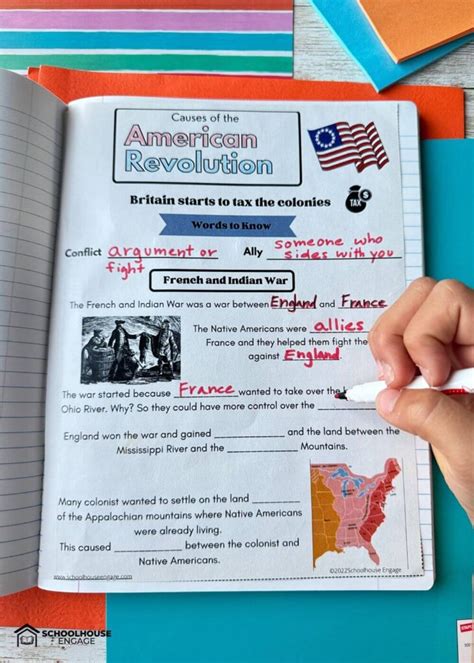 Causes of the
American
Revolution
Britain starts to tax the colonies
TAX $
Words to Know
Conflict argument or fight
Ally someone who sides with you
French and Indian War
The French and Indian War was a war between England and France
The Native Americans were allies
France and they helped them fight the
against England.
The war started because France wanted to take over the
Ohio River. Why? So they could have more control over the ____
England won the war and gained ____ and the land between the
Mississippi River and the ____ Mountains.
Many colonist wanted to settle on the land ____
of the Appalachian mountains where Native Americans
were already living.
This caused ____ between the colonist and
Native Americans.
www.schoolhouseengage.com
©2022Schoolhouse Engage
SCHOOLHOUSE
ENGAGE